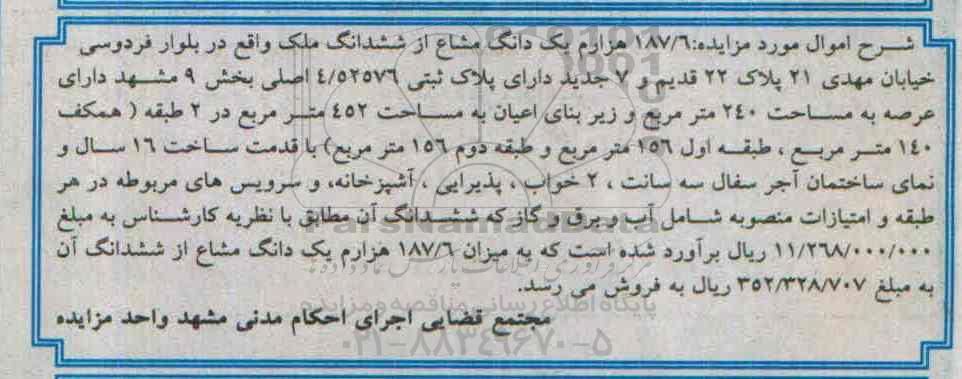 شرح اموال مورد مزایده:۱۸۷/۶ هزارم یک دانگ مشاع از ششدانگ ملک واقع در بلوار فردوسی
خیابان مهدی ۲۱ پلاک ۲۲ قدیم و ۷ جدید دارای پلاک ثبتی ۴/۵۲۵۷۶ اصلی بخش ۹ مشهد دارای
عرصه به مساحت ۲۴۰ متر مربع و زیر بنای اعیان به مساحت ۴۵۲ متر مربع در ۲ طبقه ( همکف
۱۴۰ متر مربع ، طبقه اول ۱۵۶ متر مربع و طبقه دوم ۱۵۶ متر مربع) با قدمت ساخت ۱۶ سال و
نمای ساختمان آجر سفال سه سانت ، ۲ خواب ، پذیرایی ، آشپزخانه، و سرویس های مربوطه در هر
طبقه و امتیازات منصوبه شامل آب و برق و گاز که ششدانگ آن مطابق با نظریه کارشناس به مبلغ
۱۱/۲۶۸/۰۰۰/۰۰۰ ریال برآورد شده است که به میزان ۱۸۷/۶ هزارم یک دانگ مشاع از ششدانگ آن
به مبلغ ۳۵۲/۳۲۸/۷۰۷ ریال به فروش می رسد.
مجتمع قضایی اجرای احکام مدنی مشهد واحد مزایده
ParsNamadData
پایگاه اطلاع رسانی مناقصه و مزایده
۰۲۱-۸۸۳۴۹۶۷۰-۵